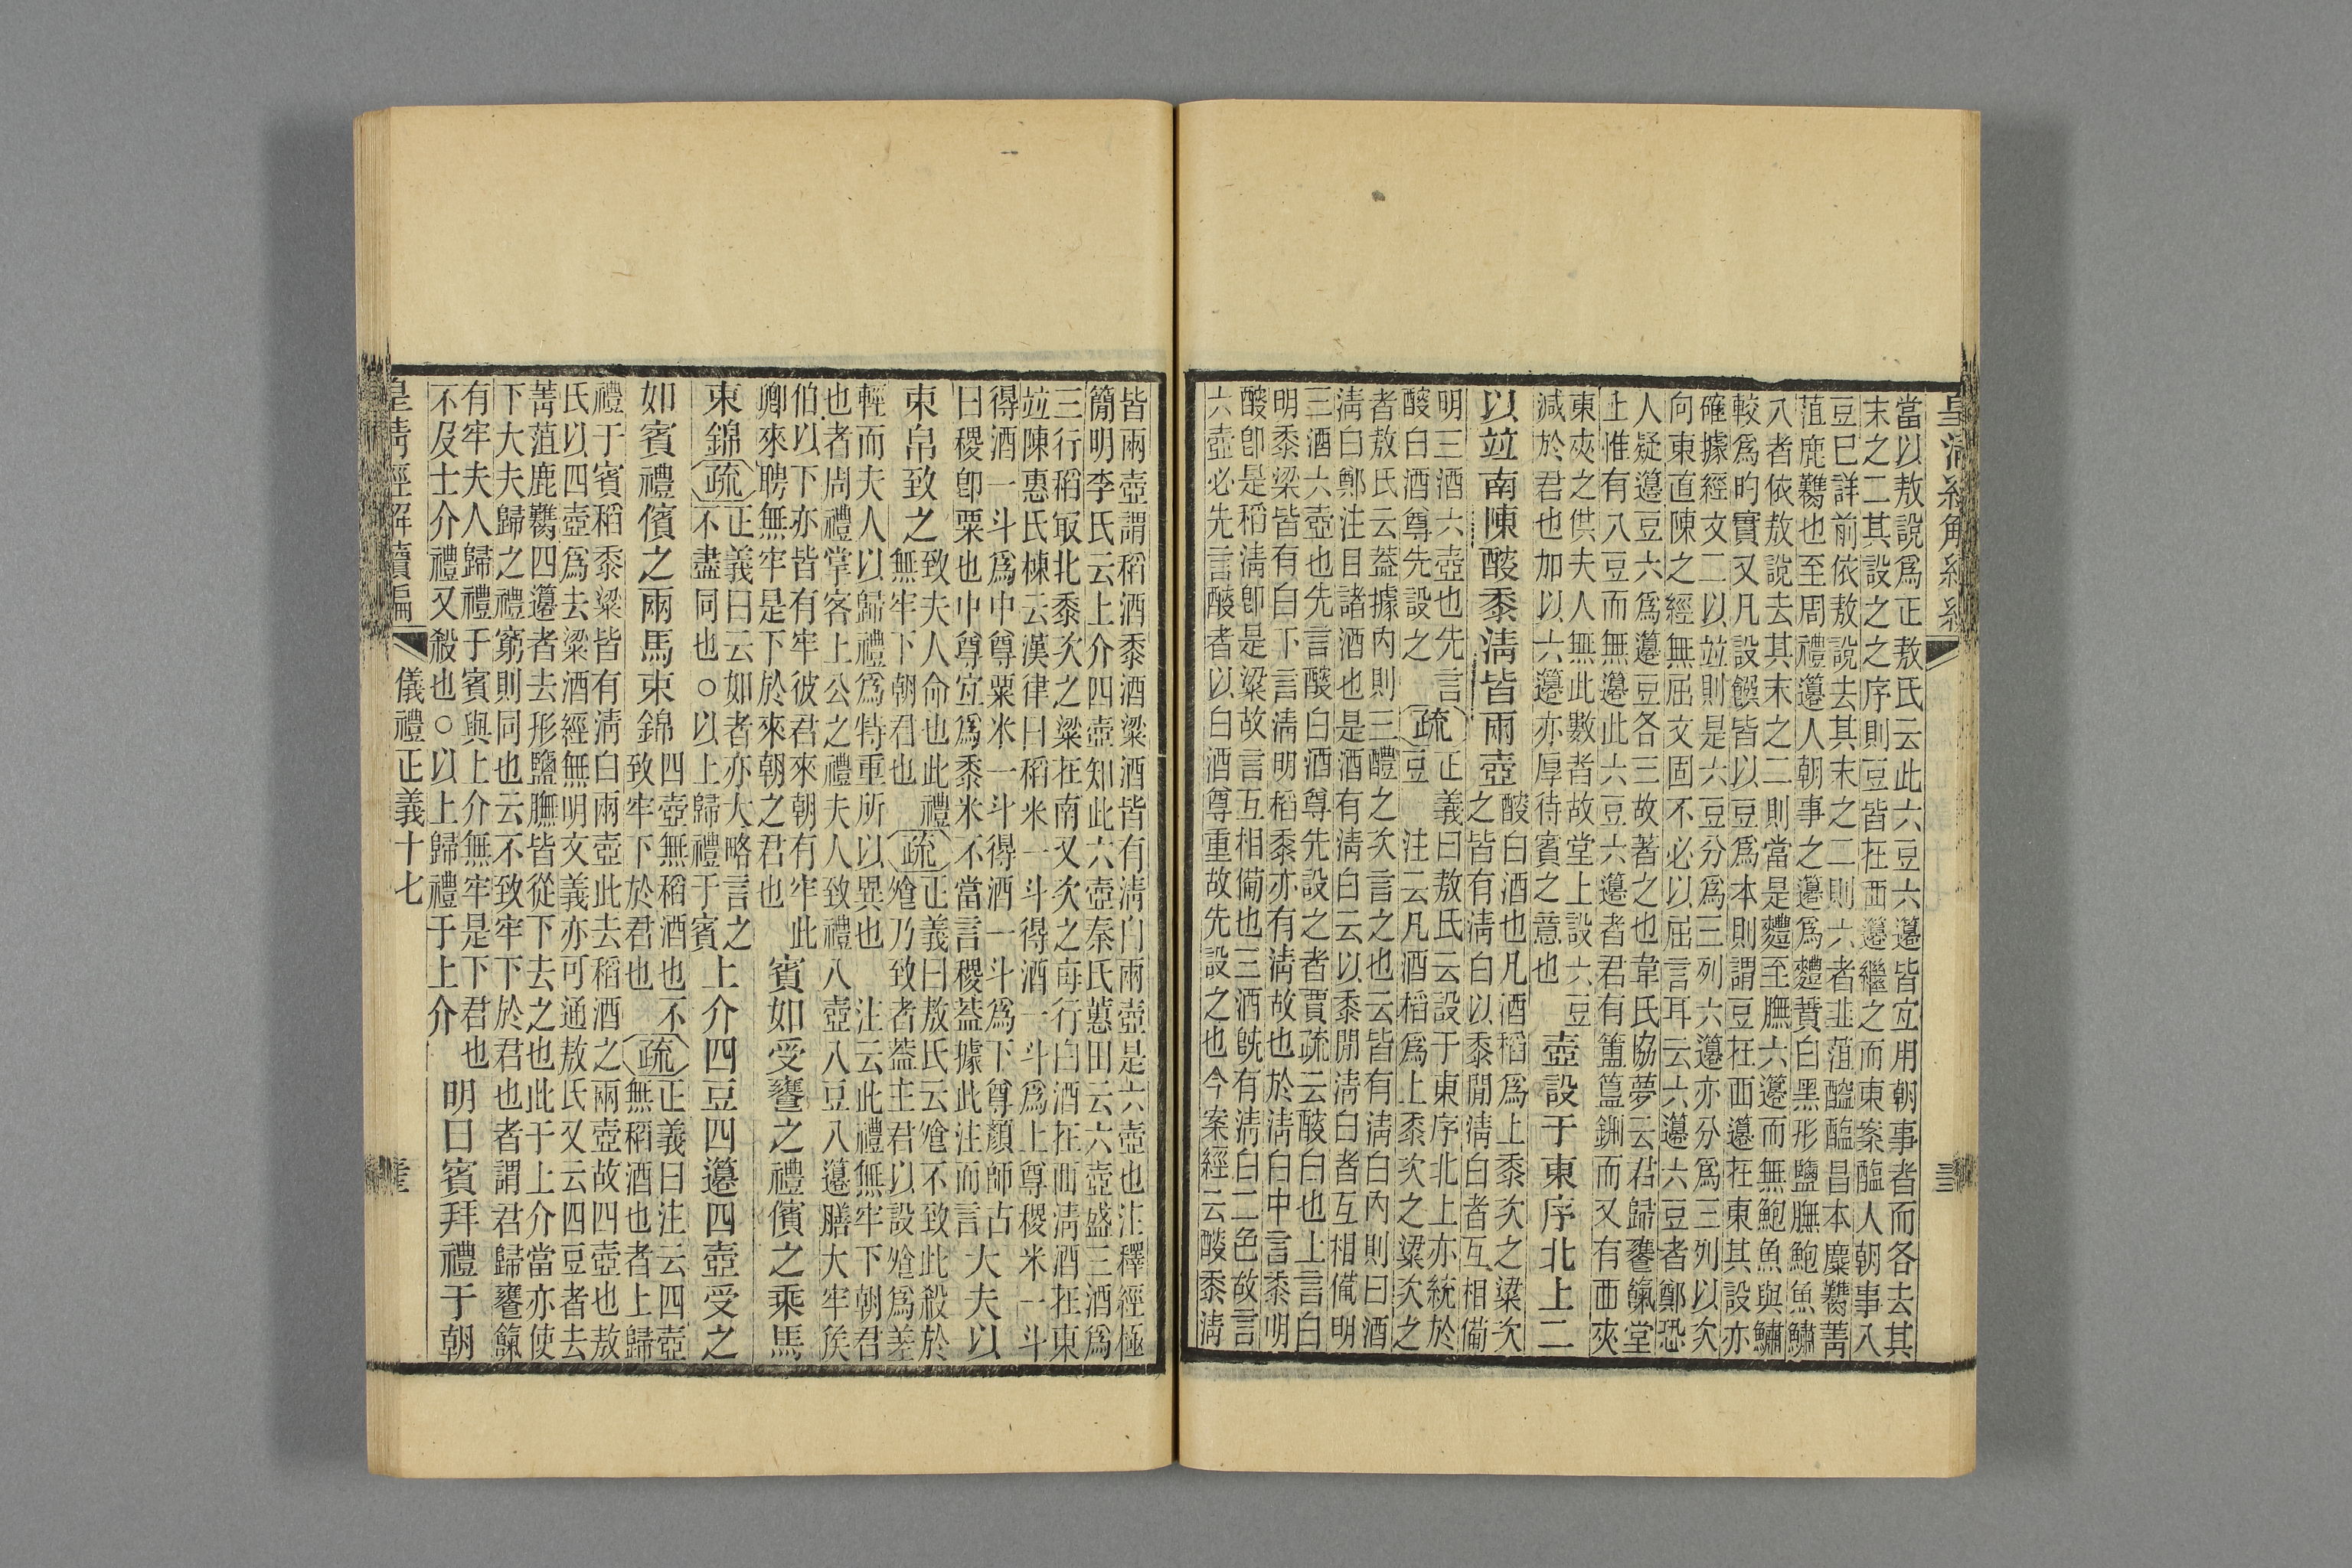 當以敖說爲正敖氏云此六豆六籩皆宜用朝事者而各去其
末之二其設之之序則豆皆在西籩繼之而東案醢人朝事八
豆巳詳前依敖說去其末之二則六者韭菹醓醢昌本麋臡菁
菹鹿臡也至周禮籩人朝事之籩爲麷蕡白黑形鹽膴鮑魚鱐
八者依敖說去其末之二則當是麷至膴六籩而無鮑魚與鱐
較爲旳實又凡設饌皆以豆爲本則謂豆在西籩在東其設亦
確據經文二以竝則是六豆分爲三列六籩亦分爲三列以次
向東直陳之經無屈文固不必以屈言耳云六籩六豆者鄭恐
人疑籩豆六爲籩豆各三故著之也韋氏協夢云君歸饔餼堂
上惟有八豆而無籩此六豆六籩者君有簠簋鉶而又有西夾
東夾之供夫人無此數者故堂上設六豆
減於君也加以六籩亦厚待賓之意也
壺設于東序北上二
以竝南陳醙黍清皆兩壺
醙白酒也凡酒稻爲上黍次之粱次
之皆有清白以黍閒清白者互相備
明三酒六壺也先言
醙白酒尊先設之
疏
正義曰敖氏云設于東序北上亦統於
豆 注云凡酒稻爲上黍次之粱次之
者敖氏云葢據內則三醴之次言之也云皆有清白內則曰酒
清白鄭注目諸酒也是酒有清白云以黍閒清白者互相備明
三酒六壺也先言醙白酒尊先設之者賈疏云醙白也上言白
明黍粱皆有白下言清明稻黍亦有清故也於清白中言黍明
醙卽是稻清卽是粱故言互相備也三酒旣有清白二色故言
六壺必先言醙者以白酒尊重故先設之也今案經云醙黍清
皆兩壺謂稻酒黍酒粱酒皆有清白兩壺是六壺也注釋經極
簡明李氏云上介四壺知此六壺秦氏蕙田云六壺盛三酒爲
三行稻取北黍次之粱在南又次之每行白酒在西清酒在東
竝陳惠氏棟云漢律曰稻米一斗得酒一斗爲上尊稷米一斗
得酒一斗爲中尊粟米一斗得酒一斗爲下尊顏師古
曰稷卽粟也中尊宜爲黍米不當言稷葢據此注而言
大夫以
束帛致之
致夫人命也此禮
無牢下朝君也
疏
正義曰敖氏云飧不致此殺於
飧乃致者葢主君以設飧爲差
輕而夫人以歸禮爲特重所以異也 注云此禮無牢下朝君
也者周禮掌客上公之禮夫人致禮八壺八豆八籩膳大牢侯
伯以下亦皆有牢彼君來朝有牢此
卿來聘無牢是下於來朝之君也
賓如受饔之禮儐之乘馬
束錦
疏
正義曰云如者亦大略言之
不盡同也○以上歸禮于賓
上介四豆四籩四壺受之
如賓禮儐之兩馬束錦
四壺無稻酒也不
致牢下於君也
疏
正義曰注云四壺
無稻酒也者上歸
禮于賓稻黍粱皆有清白兩壺此去稻酒之兩壺故四壺也敖
氏以四壺爲去粱酒經無明文義亦可通敖氏又云四豆者去
菁菹鹿臡四籩者去形鹽膴皆從下去之也此于上介當亦使
下大夫歸之禮窮則同也云不致牢下於君也者謂君歸饔餼
有牢夫人歸禮于賓與上介無牢是下君也
不及士介禮又殺也○以上歸禮于上介
明日賓拜禮于朝
皇清經解續編
儀禮正義十七